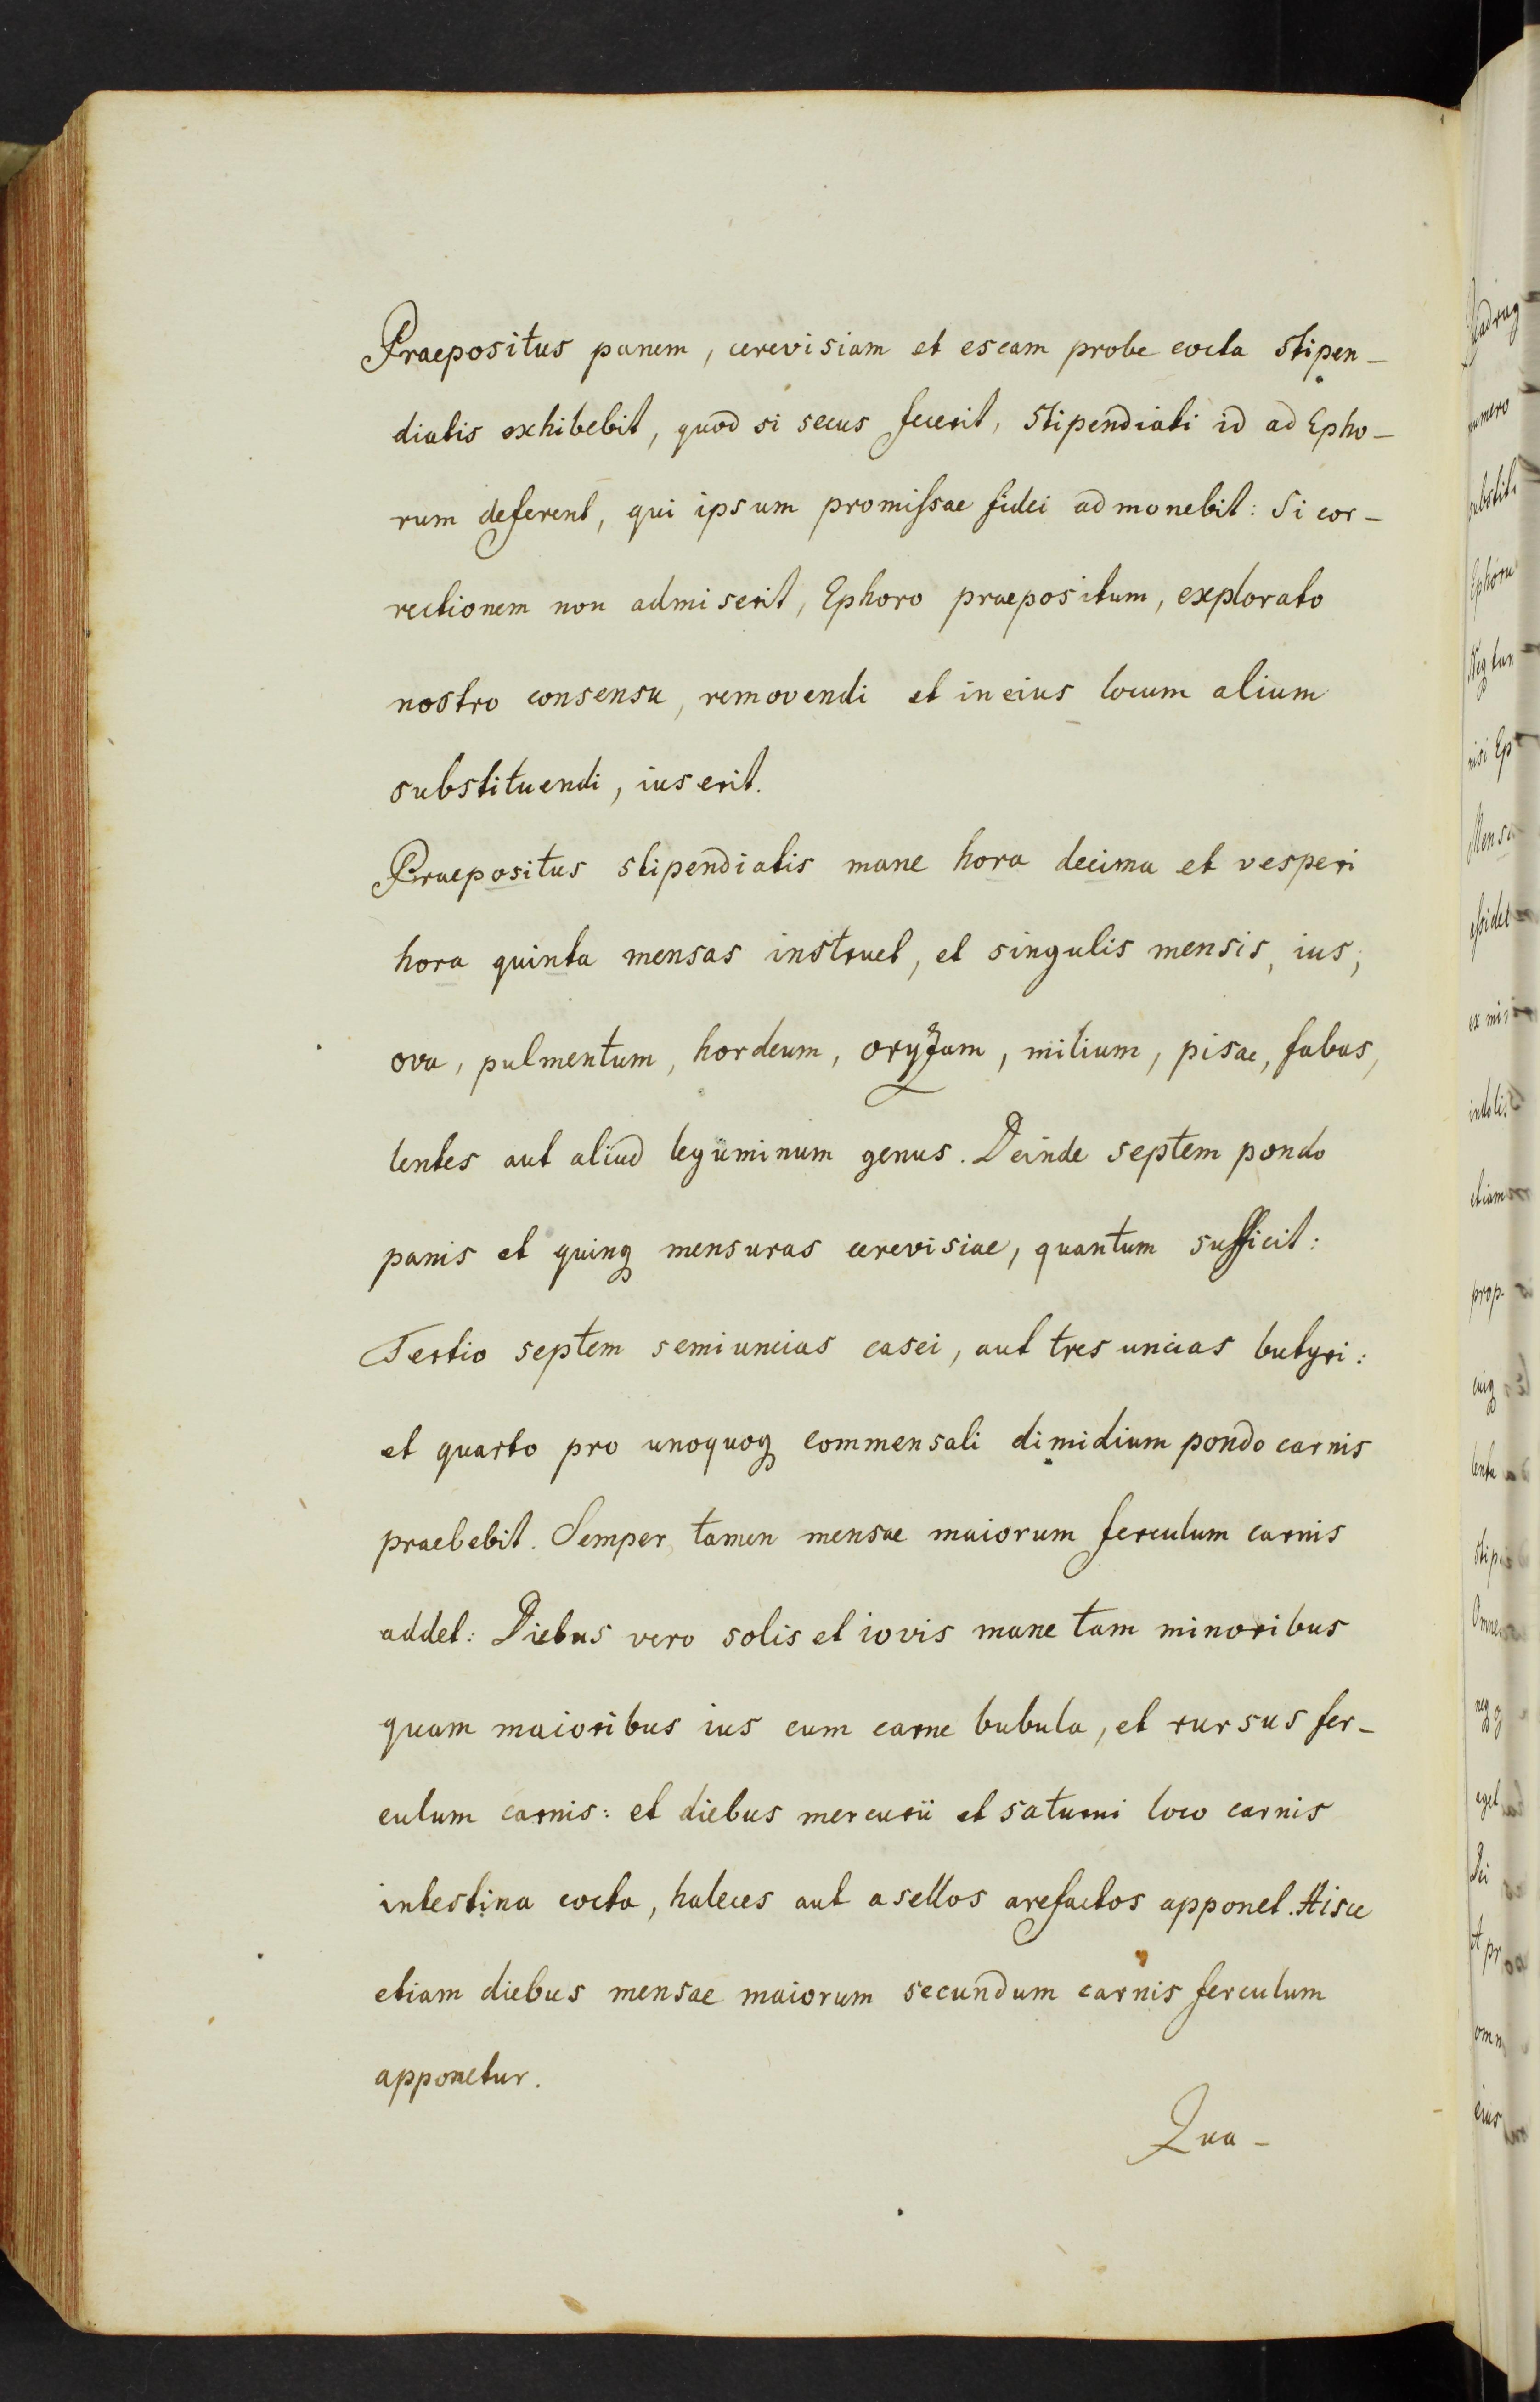 Praepositus panem, cerevisiam et escam probe cocta stipen-
diatis exhibebit, quod si secus fecerit, Stipendiati id ad Epho-
rum deferent, qui ipsum promiſsae fidei admonebit: Si cor-
rectionem non admiserit, Ephoro praepositum, explorato
nostro consensu, removendi et in eius locum alium
substituendi, ius erit.
Praepositus stipendiatis mane hora decima et vesperi
hora quinta mensas instruet, et singulis mensis, ius,
ova, pulmentum, hordeum, oryzam, milium, pisae, fabas,
lentes aut aliud leguminum genus. Deinde septem pondo
panis et quinq mensuras cerevisiae, quantum sufficit:
Tertio septem semiuncias casei, aut tres uncias butyri:
et quarto pro unoquoq commensali dimidium pondo carnis
praebebit. Semper tamen mensae maiorum ferculum carnis
addet: Diebus vero solis et iovis mane tam minoribus
quam maioribus ius cum carne bubula, et rursus fer-
culum carnis: et diebus mercurii et saturni loco carnis
intestina cocta, haleces aut asellos arefactos apponet. Hisce
etiam diebus mensae maiorum secundum carnis ferculum
apponetur.
Qua-
numero
nisi Ep
ex mi
etiam
prop